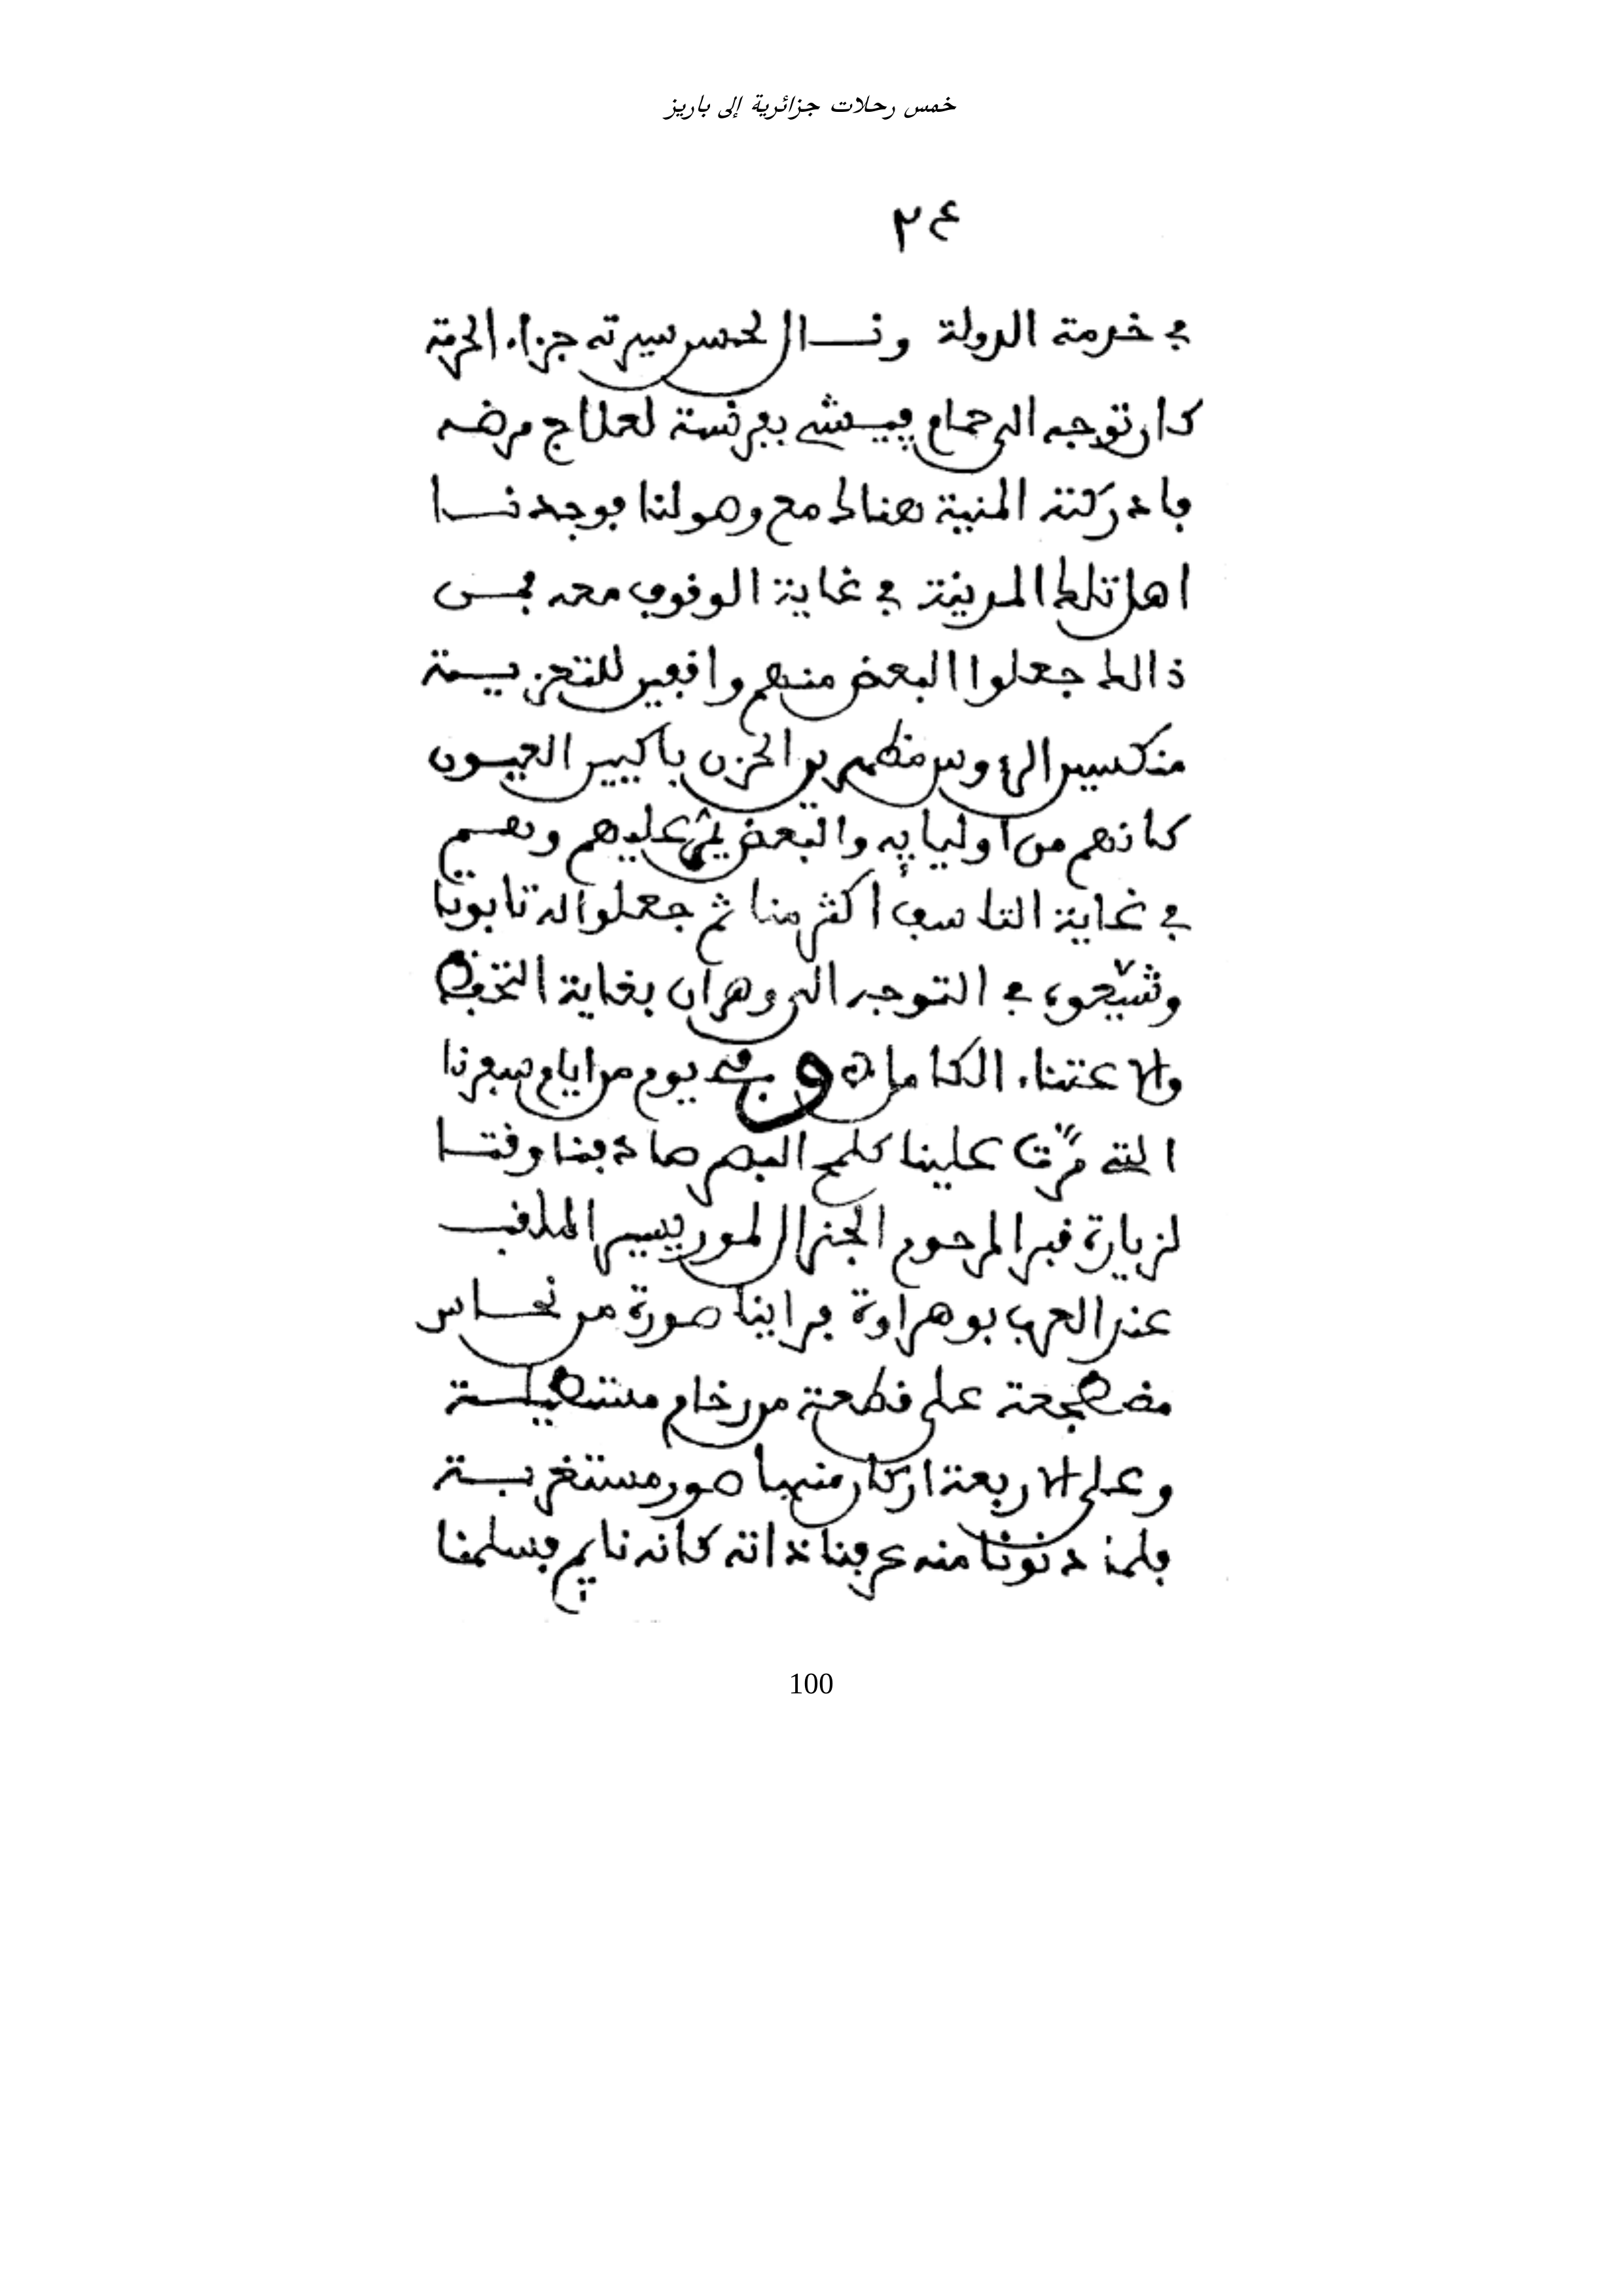 خمس رحلات جزائرية إلى باريز
٢٤
في خدمة الدولة ونـــال لحسن سيرته جزاء الحرمة
كان توجه الى حمام ڢيـشي بفرنسة لعلاج مرضه
فادركته المنية هنالك مع وصولنا فوجدنـــا
اهل تلك المدينة في غاية الوقوف معه فمــن
ذالك جعلوا البعض منهم واقفين للتعزيــة
منكسين الرءوس مظهرين الحزن باكيين العيــون
كانهم من اوليايه والبعض يمر عليهم وهــم
في غاية التاسف اكثر منا ثم جعلوا له تابوتا
وشيّعوه في التوجه الى وهران بغاية التحفظ
والاعتناء الكامل ه وفي يوم من ايام سفرنا
التي مرّت علينا كلمح البصر صادفنا وقتــا
لزيارة قبر المرحوم الجنرال لموريسير الملقب
عند العرب بوهراوة فراينا صورة من نحــاس
مضطجعة على قطعة من رخام مستطيلــة
وعلى الاربعة اركان منها صور مستغربــة
فلما دنونا منه عرفنا ذاته كانه نايم فسلمنا
100